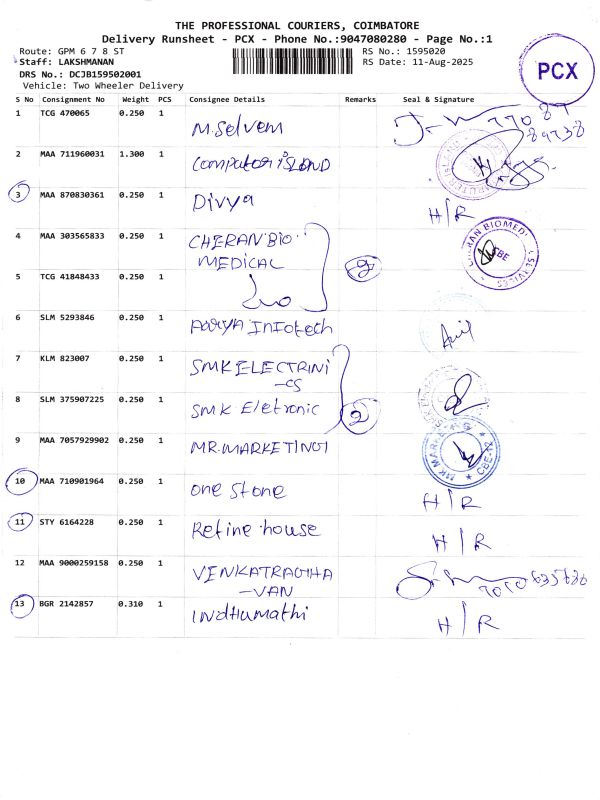 THE PROFESSIONAL COURIERS, COIMBATORE
Delivery Runsheet - PCX - Phone No.:9047080280 - Page No.:1
Route: GPM 6 7 8 ST RS No.: 1595020
Staff: LAKSHMANAN RS Date: 11-Aug-2025
DRS No.: DCJB159502001
Vehicle: Two Wheeler Delivery
PCX
S No Consignment No Weight PCS Consignee Details Remarks Seal & Signature
1 TCG 470065 0.250 1 M.Selvem
2 MAA 711960031 1.300 1 Computer iSLOND
3 MAA 870830361 0.250 1 Divya H/R
4 MAA 303565833 0.250 1 CHERAN BIO
MEDICAL
5 TCG 41848433 0.250 1
6 SLM 5293846 0.250 1 Aarya Infotech
7 KLM 823007 0.250 1 SMK ELECTRINI
-CS
8 SLM 375907225 0.250 1 SMK Eletronic 2
9 MAA 7057929902 0.250 1 MR.MARKETING
10 MAA 710901964 0.250 1 one stone H/R
11 STY 6164228 0.250 1 Refine house H/R
12 MAA 9000259158 0.250 1 VENKATRAGHA
-VAN
13 BGR 2142857 0.310 1 Indhumathi H/R